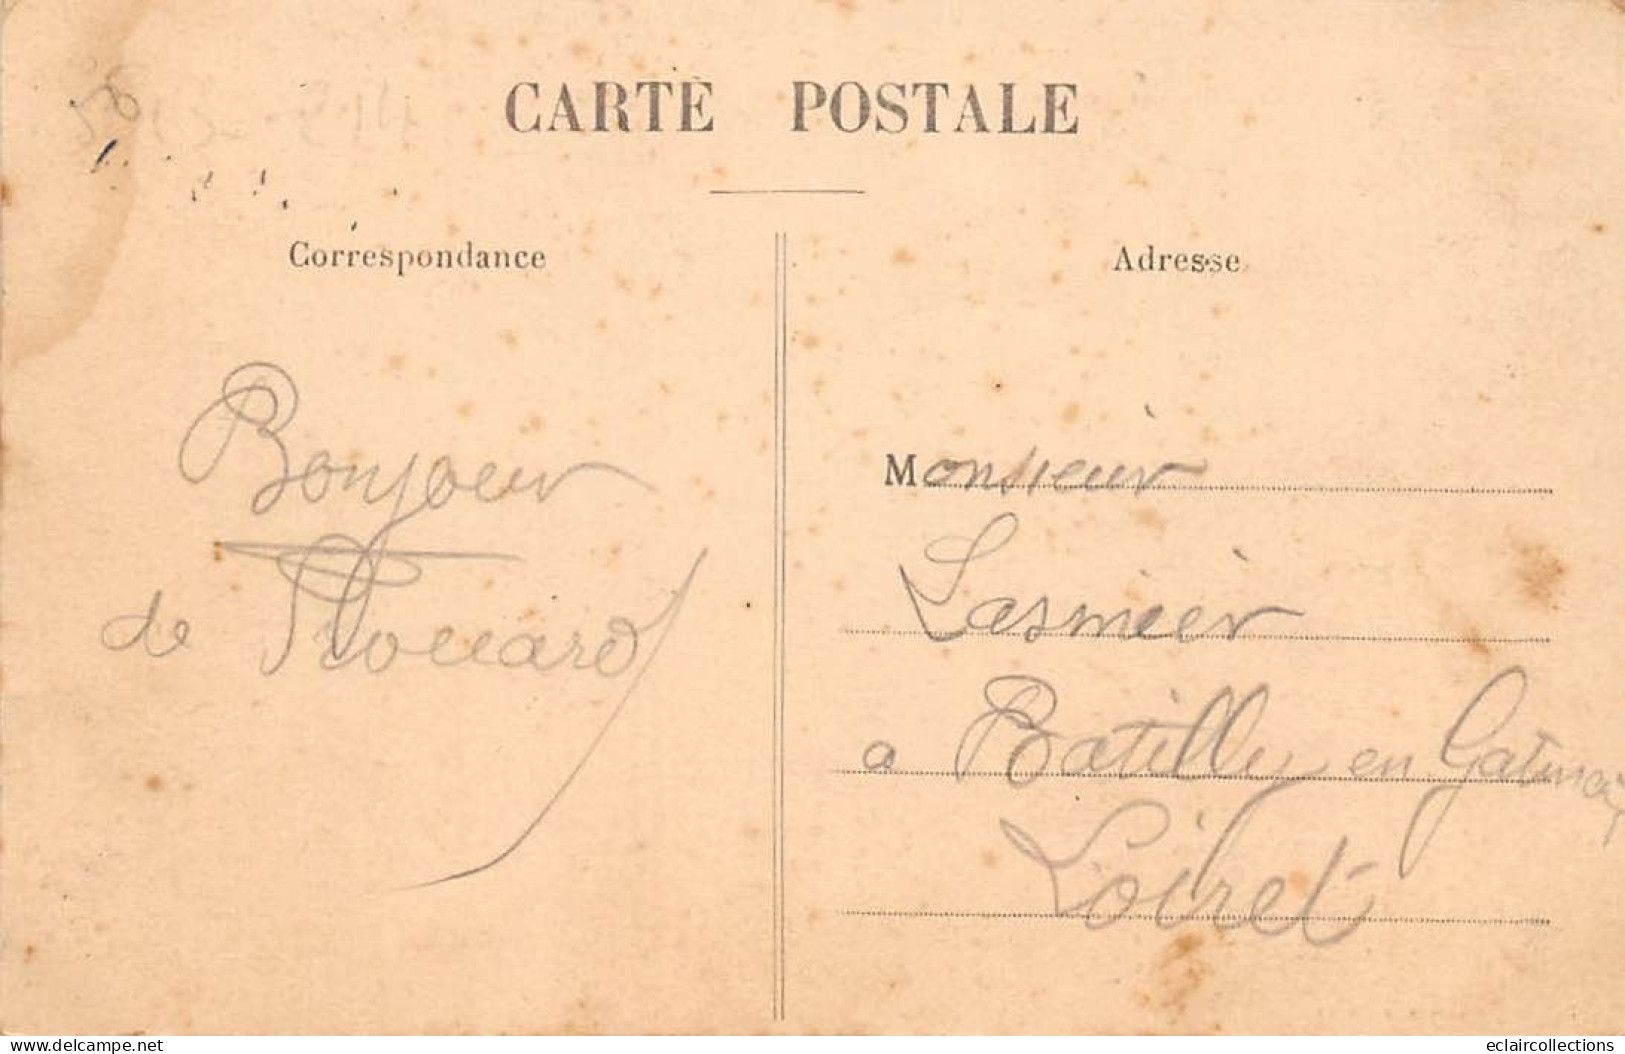 CARTE POSTALE
Correspondance
Adresse
Bonjour
de Rouard
Monsieur
Lasmier
a Batilly en Gatinais
Loiret
delcampe.net
eclaircollections